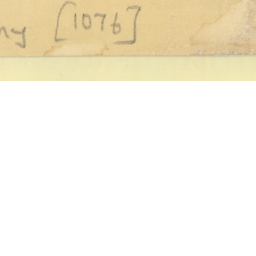 ny [1076]